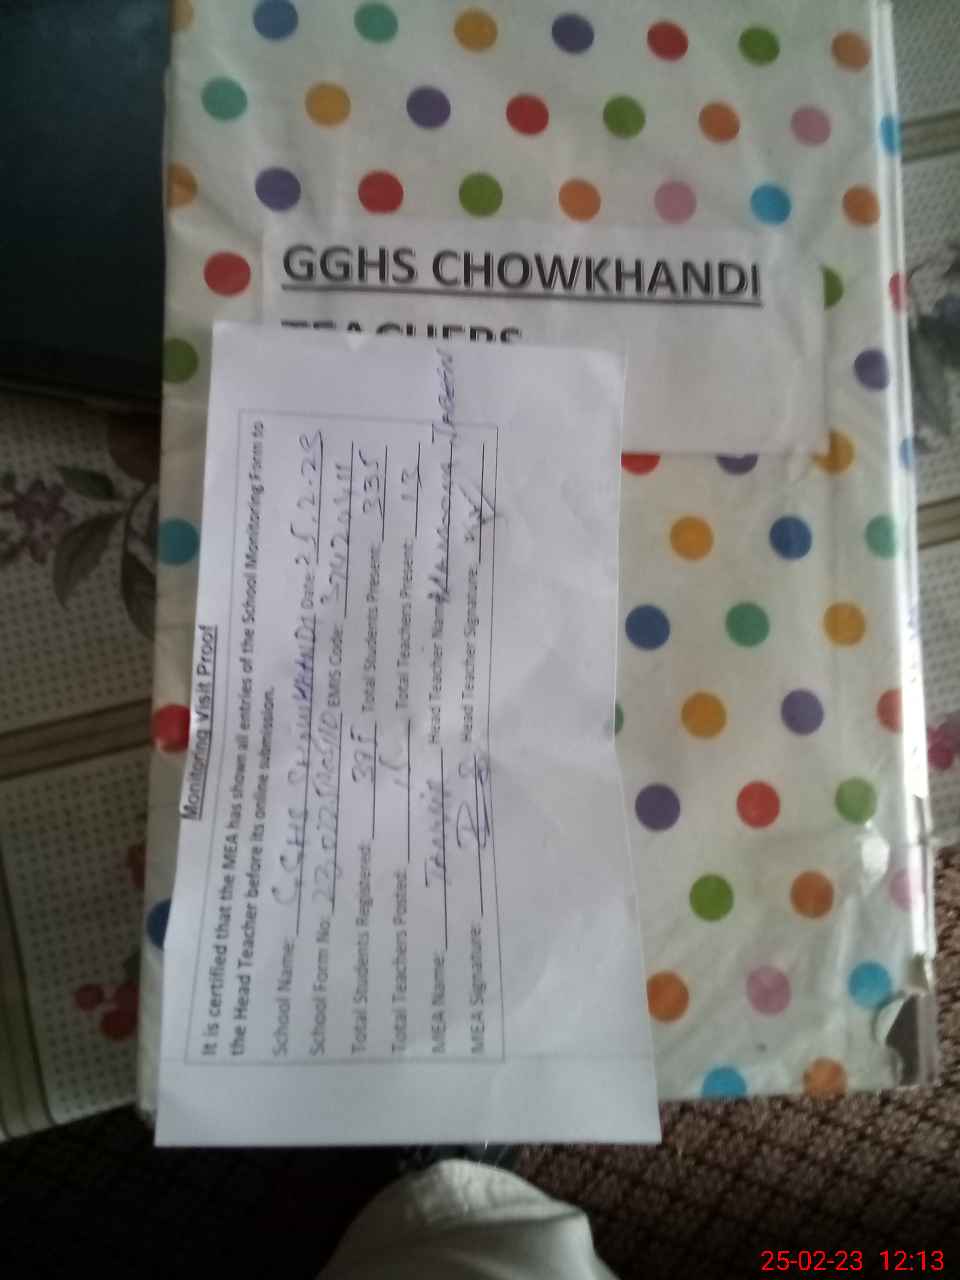 GGHS CHOWKHANDI
TEACHERS
Monitoring Visit Proof
It is certified that the MEA has shown all entries of the School Monitoring Form to
the Head Teacher before its online submission.
School Name: GGHS Date: 25.2.23
School Form No: EMIS Code:
Total Students Registered: Total Students Present: 335
Total Teachers Posted: Total Teachers Present: 13
MEA Name: Head Teacher Name:
MEA Signature: Head Teacher Signature:
25-02-23 12:13